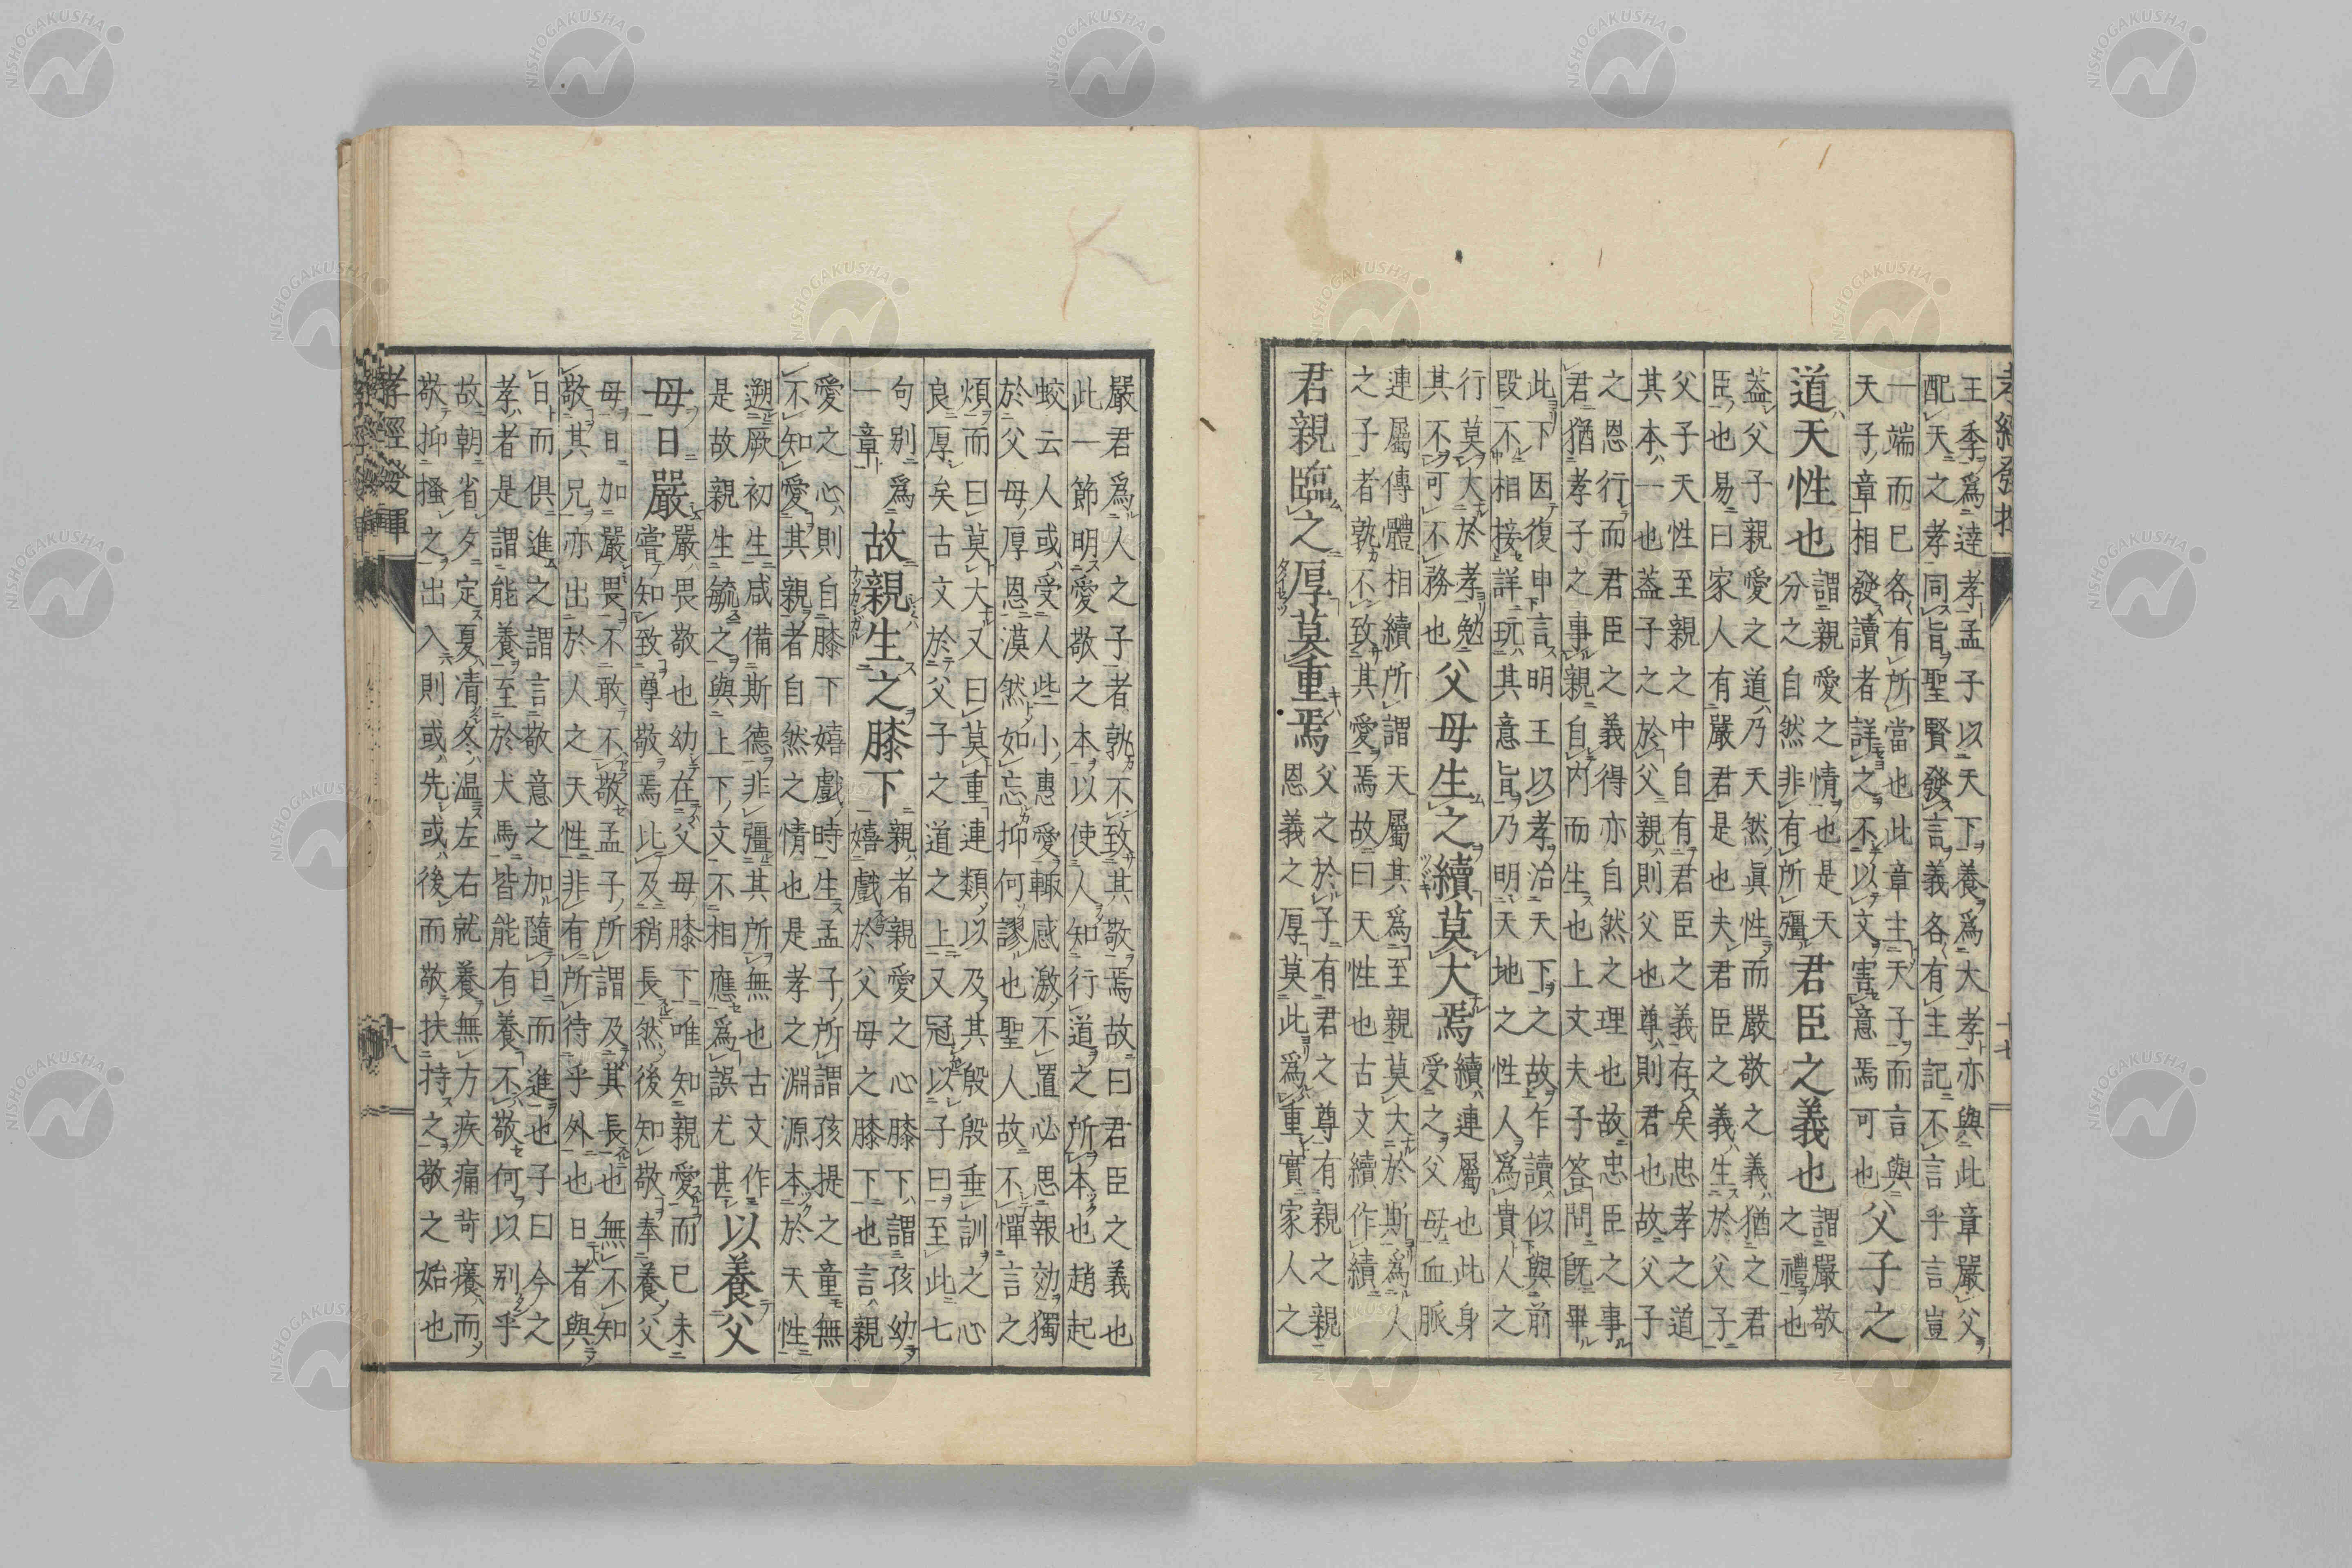 王季爲達孝孟子以天下養爲大孝亦與此章嚴父
配天之孝同旨聖賢發言義各有主記不言乎言豈
一端而已各有所當也此章主天子而言與
天子章相發讀者詳之不以文害意焉可也
父子之
道天性也
謂親愛之情也是天
分之自然非有所彊
君臣之義也
謂嚴敬
之禮也
蓋父子親愛之道乃天然眞性而嚴敬之義猶之君
臣也易曰家人有嚴君是也夫君臣之義生於父子
父子天性至親之中自有君臣之義存矣忠孝之道
其本一也蓋子之於父親則父也尊則君也故父子
之恩行而君臣之義得亦自然之理也故忠臣之事
君猶孝子之事親自内而生也上文夫子答問既畢
此下因復申言明王以孝治天下之故乍讀似與前
段不相接詳玩其意旨乃明天地之性人爲貴人之
行莫大於孝勉
其不可不務也
父母生之續莫大焉
續連屬也此身
受之父母血脈
連屬傳體相續所謂天屬其爲至親莫大於斯爲人
之子者孰不致其愛焉故曰天性也古文續作績
君親臨之厚莫重焉
父之於子有君之尊有親之親
恩義之厚莫此爲重實家人之
嚴君爲人之子者孰不致其敬焉故曰君臣之義也
此一節明愛敬之本以使人知行道之所本也趙起
蛟云人或受人些小惠愛輒感激不置必思報効獨
於父母厚恩漠然如忘抑何謬也聖人故不憚言之
煩而曰莫大又曰莫重連類以及其殷殷垂訓之心
良厚矣古文於父子之道之上又冠以子曰至此七
句別爲
一章
故親生之膝下
親者親愛之心膝下謂孩幼
嬉戲於父母之膝下也言親
愛之心則自膝下嬉戲時生孟子所謂孩提之童無
不知愛其親者自然之情也是孝之淵源本於天性
遡厥初生咸備斯德非彊其所無也古文作
是故親生毓之與上下文不相應爲誤尤甚
以養父
母日嚴
嚴畏敬也幼在父母膝下唯知親愛而已未
嘗知致尊敬焉比及稍長然後知敬奉養父
母日加嚴畏不敢不敬孟子所謂及其長也無不知
敬其兄亦出於人之天性非有所待乎外也日者與
日而俱進之謂言敬意之加隨日而進也子曰今之
孝者是謂能養至於犬馬皆能有養不敬何以別乎
故朝省夕定夏凊冬温左右就養無方疾痛苛癢而
敬抑搔之出入則或先或後而敬扶持之敬之始也
孝經發揮
十八